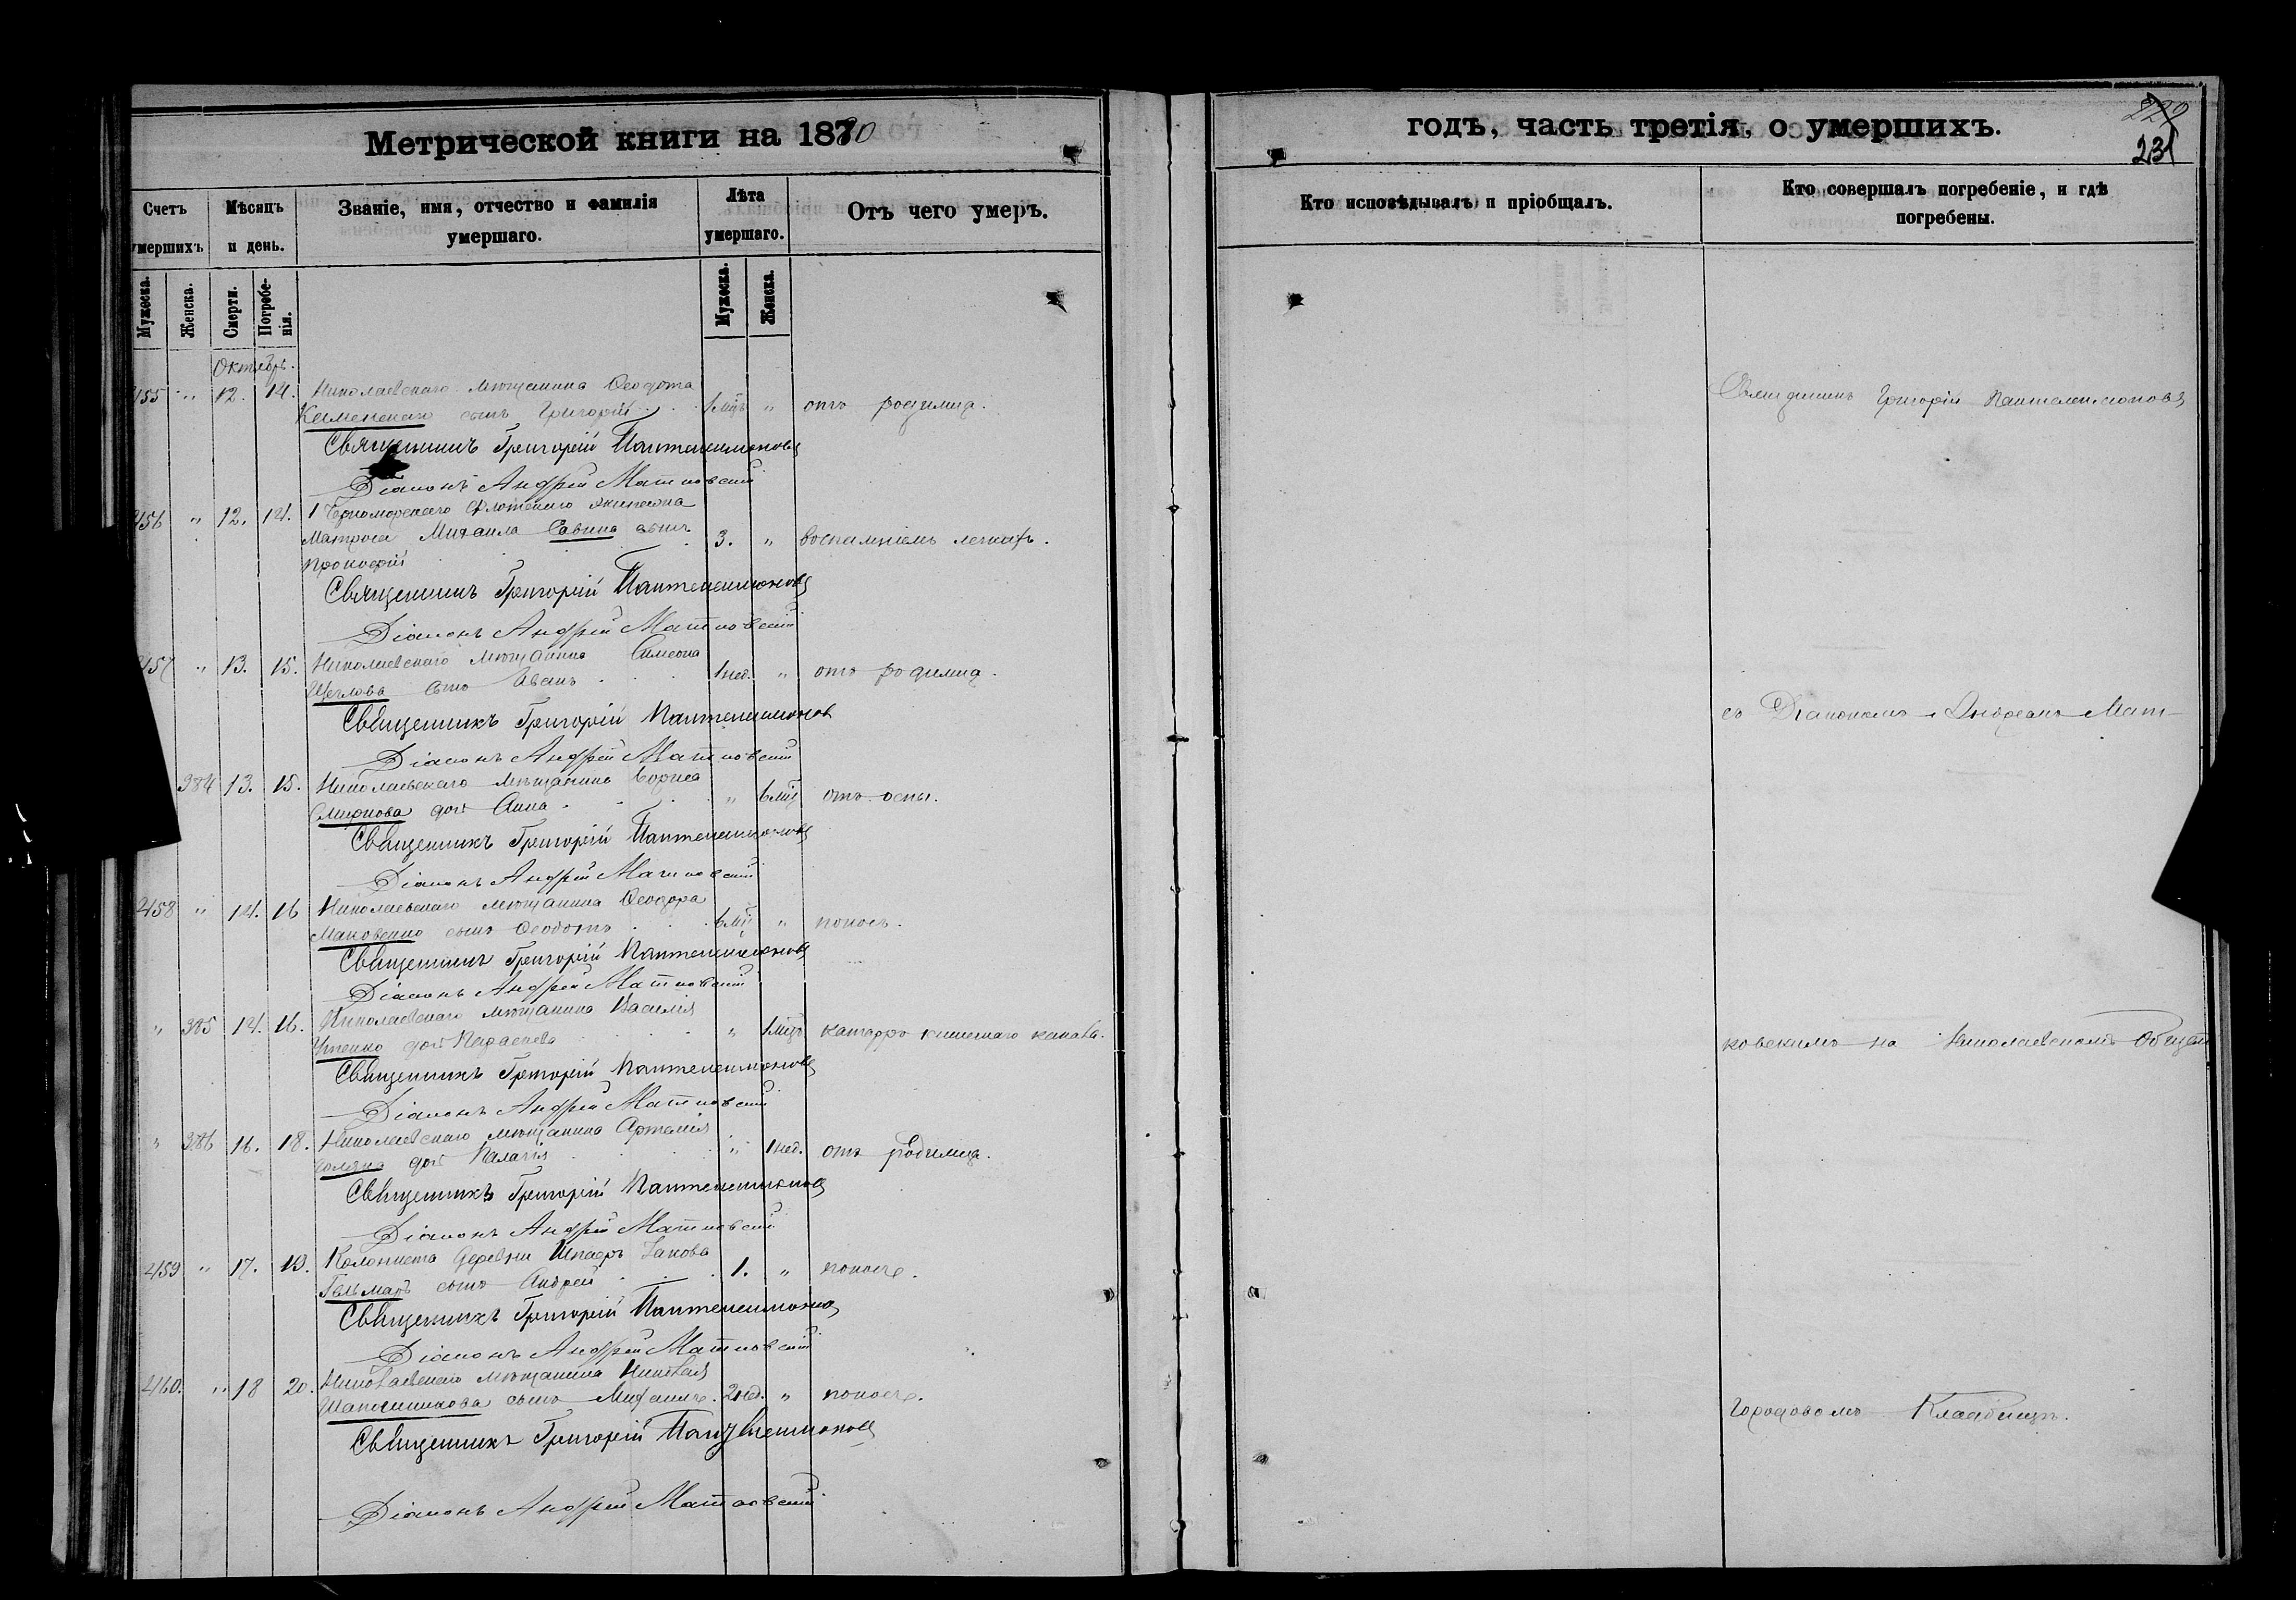 Метрической книги на 1880
годъ, часть третія, о умершихъ.
229
231
Счетъ умершихъ
Мѣсяцъ и день.
Званіе, имя, отчество и фамилія умершаго.
Лѣта умершаго.
Отъ чего умеръ.
Кто исповѣдывалъ и пріобщалъ.
Кто совершалъ погребеніе, и гдѣ погребены.
Мужеска.
Женска.
Смерти.
Погребенія.
Мужеска.
Женска.
Октябрь.
455 " 12. 14. Николаевскаго мѣщанина Ѳеодота
Каменскаго сынъ Григорій 1 мцъ " отъ родимца.
Священникъ Григорій Пантелеимоновъ
Діаконъ Андрей Матковскій
456 " 12. 14. 1 Черноморскаго Флотскаго экипажа
Матроса Михаила Савина сынъ 3. " воспаленіемъ легкихъ.
Прокофій
Священникъ Григорій Пантелеимоновъ
Діаконъ Андрей Матковскій
457 " 13. 15. Николаевскаго мѣщанина Симеона
Щеглова сынъ Иванъ 1 нед. " отъ родимца.
Священникъ Григорій Пантелеимоновъ
Діаконъ Андрей Матковскій
384 13. 15. Николаевскаго мѣщанина Бориса
Смирнова дочь Анна " 6 мцъ отъ оспы.
Священникъ Григорій Пантелеимоновъ
Діаконъ Андрей Матковскій
458 " 14. 16 Николаевскаго мѣщанина Ѳеодора
Маковенко сынъ Ѳеодотъ 6 мцъ " поносъ.
Священникъ Григорій Пантелеимоновъ
Діаконъ Андрей Матковскій
" 385 14. 16. Николаевскаго мѣщанина Василія
дочь Параскева " 1 мцъ катарръ кишечнаго канала.
Священникъ Григорій Пантелеимоновъ
Діаконъ Андрей Матковскій
" 386 16. 18. Николаевскаго мѣщанина Артемія
дочь Пелагія " 1 нед. отъ родимца.
Священникъ Григорій Пантелеимоновъ
Діаконъ Андрей Матковскій
459 " 17. 19. Колониста деревни Шпаеръ Іакова
Гельмаръ сынъ Андрей 1. " поносъ.
Священникъ Григорій Пантелеимоновъ
Діаконъ Андрей Матковскій
460. " 18 20. Николаевскаго мѣщанина Николая
Шапошникова сынъ Михаилъ. 2 нед. " поносъ.
Священникъ Григорій Пантелеимоновъ
Діаконъ Андрей Матковскій
Священникъ Григорій Пантелеимоновъ
съ Діакономъ Андреемъ Мат-
ковскимъ на Николаевскомъ Общем
Городовомъ Кладбищѣ.